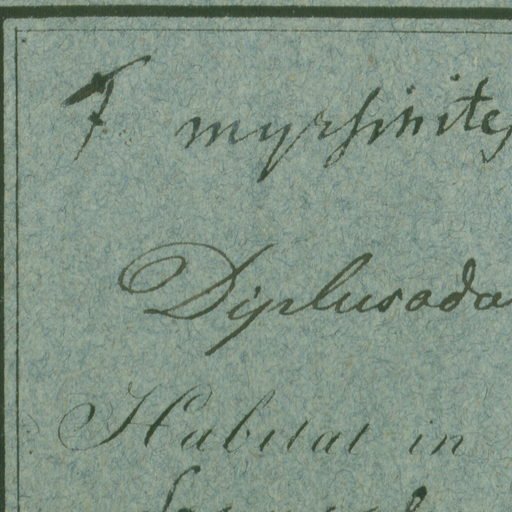 myrsinites
Diplusoda
Habitat in